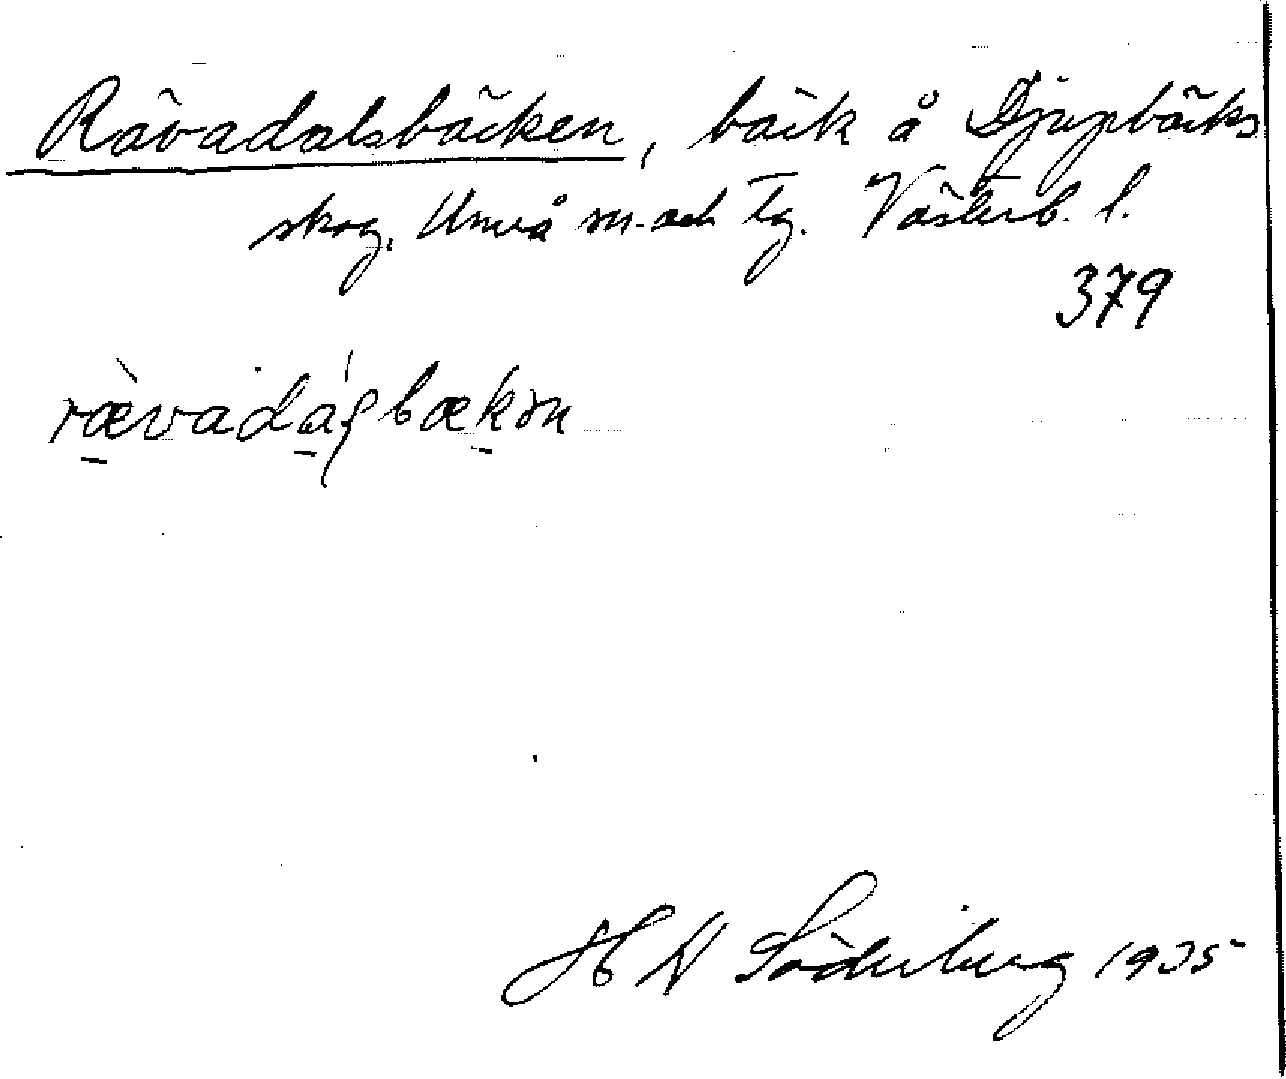 Rävadalsbäcken, bäck å Djupbäcks
skog, Umeå sn. och tg. Västerb. l.
379
ræ̀vadáꞎbækən
H N Söderberg 1935